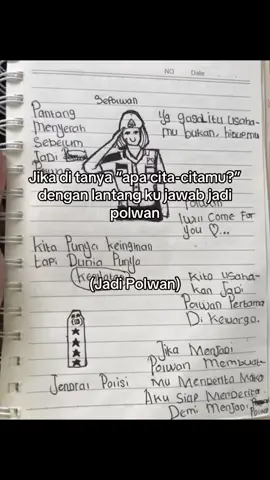 NO Date
Sepolwan
Pantang
Menyerah
Sebelum
Jadi
Yg gagal itu usaha-
mu bukan, hidupmu
Jika di tanya "apa cita-citamu?"
dengan lantang ku jawab jadi
polwan
Polwan
I will come for
you ♡...
Kita Punya keinginan
tapi Dunia Punya
Kenyataan
(Jadi Polwan)
Kita usaha-
kan Jadi
Polwan Pertama
Di Keluarga.
Jendral Polisi
Jika Menjadi
Polwan Membuat-
Mu Menderita Maka
Aku Siap Menderita
Demi Menjadi